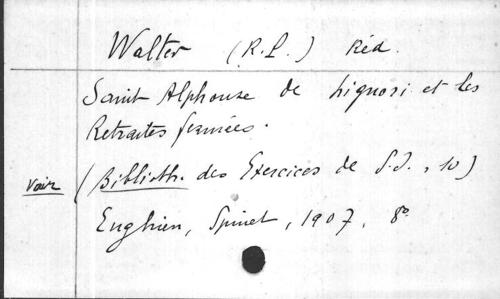 Walter (R.P.) Réd.
Saint Alphonse de Liguori et les
Retraites fermées.
voir (Biblioth. des Exercices de S.I., 10)
Enghien, Spinet, 1907, 8º